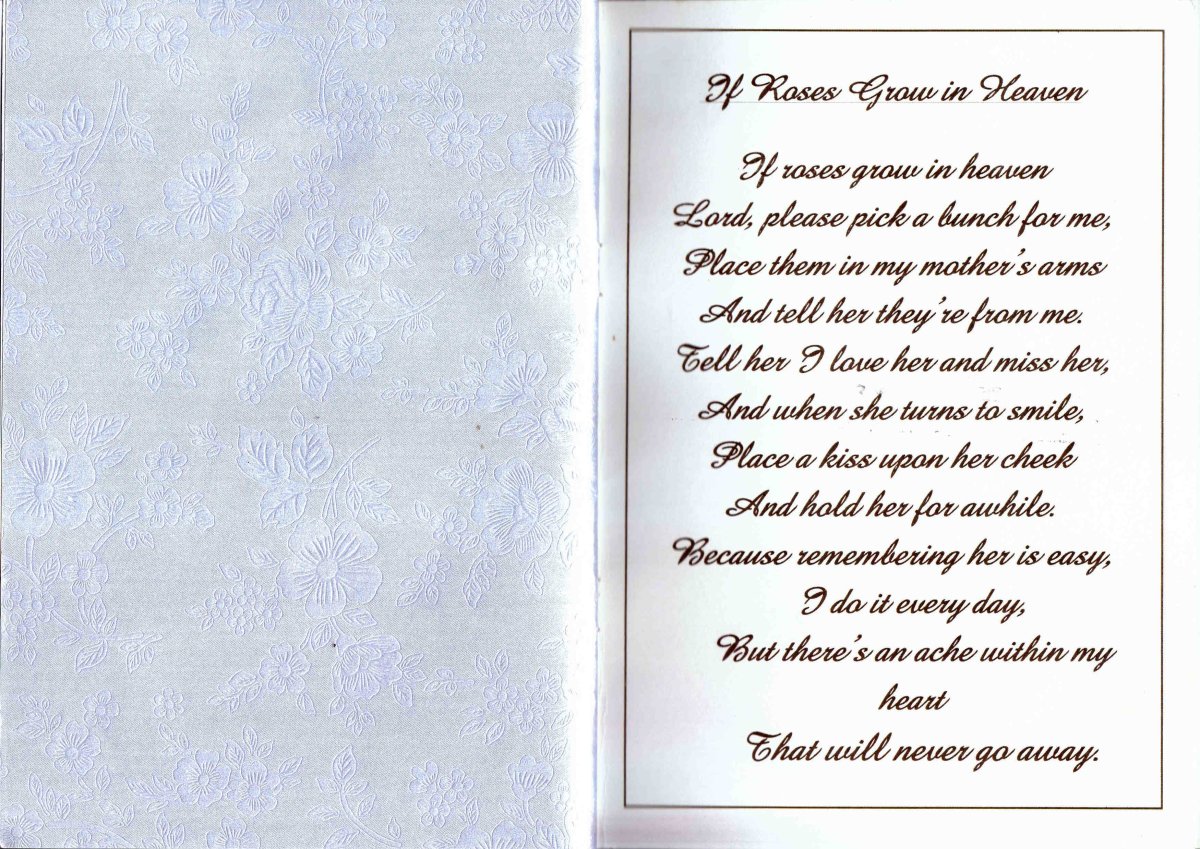 If Roses Grow in Heaven
If roses grow in heaven
Lord, please pick a bunch for me,
Place them in my mother's arms
And tell her they're from me.
Tell her I love her and miss her,
And when she turns to smile,
Place a kiss upon her cheek
And hold her for awhile.
Because remembering her is easy,
I do it every day,
But there's an ache within my
heart
That will never go away.